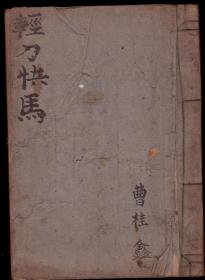 輕刀快馬
曹桂鑫